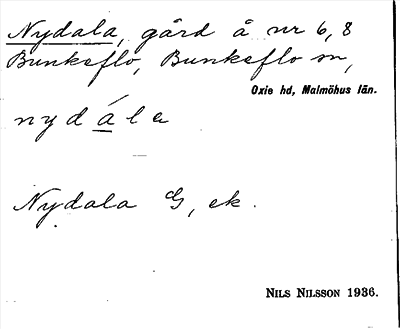 Nydala, gård å nr 6, 8
Bunkeflo, Bunkeflo sn,
Oxie hd, Malmöhus län.
nydála
Nydala G, ek.
NILS NILSSON 1936.